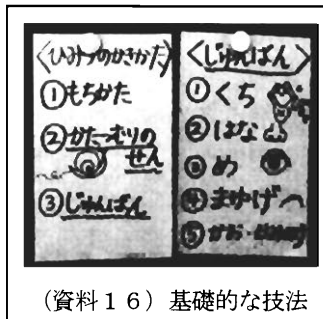 〈ひみつのかきかた〉
①もちかた
②かたつむりの
せん
③じゅんばん
〈じゅんばん〉
①くち
②はな
③め
④まゆげ
⑤かお
(資料16)基礎的な技法